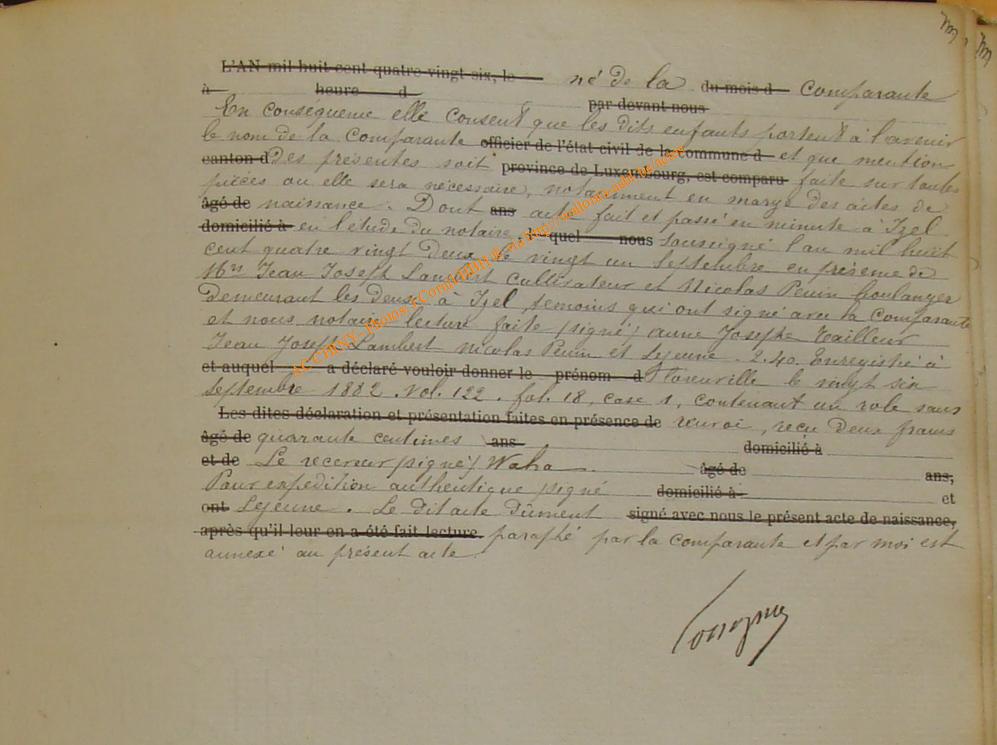 L'AN mil huit cent quatre-vingt-six, le né de la du mois d comparante
à heure d par devant nous
En conséquence elle consent que les dits enfants portent à l'avenir
le nom de la comparante officier de l'état civil de la commune d et que mention
canton d Des présentes soit province de Luxembourg, est comparu faite sur toutes
pièces ou elle sera nécessaire, notamment en marge des actes de
âgé de naissance. Dont ans acte fait et passé en minute à Izel
domicilié à en l'étude du notaire, lequel nous soussigné l'an mil huit
cent quatre vingt Deux, le vingt un Septembre en présence de
Mrs Jean Joseph Lambert Cultivateur et Nicolas Penin boulanger
Demeurant les Deux à Izel, témoins qui ont signé avec la Comparante
et nous notaire lecture faite (signé) anne Josephe Tailleur
Jean Joseph Lambert nicolas Penin et Lejeune 2.40. Enregistré à
et auquel a déclaré vouloir donner le prénom d Florenville le vingt six
Septembre 1882. Vol. 122. fol. 18, case 1, contenant un role sans
Les dites déclaration et présentation faites en présence de renvoi, reçu Deux francs
âgé de quarante centimes ans domicilié à
et de Le receveur (signé) Waha âgé de ans,
Pour expédition authentique signé domicilié à et
ont Lejeune. Le dit acte Dûment signé avec nous le présent acte de naissance,
après qu'il leur en a été fait lecture. paraphé par la comparante et par moi est
annexé au présent acte